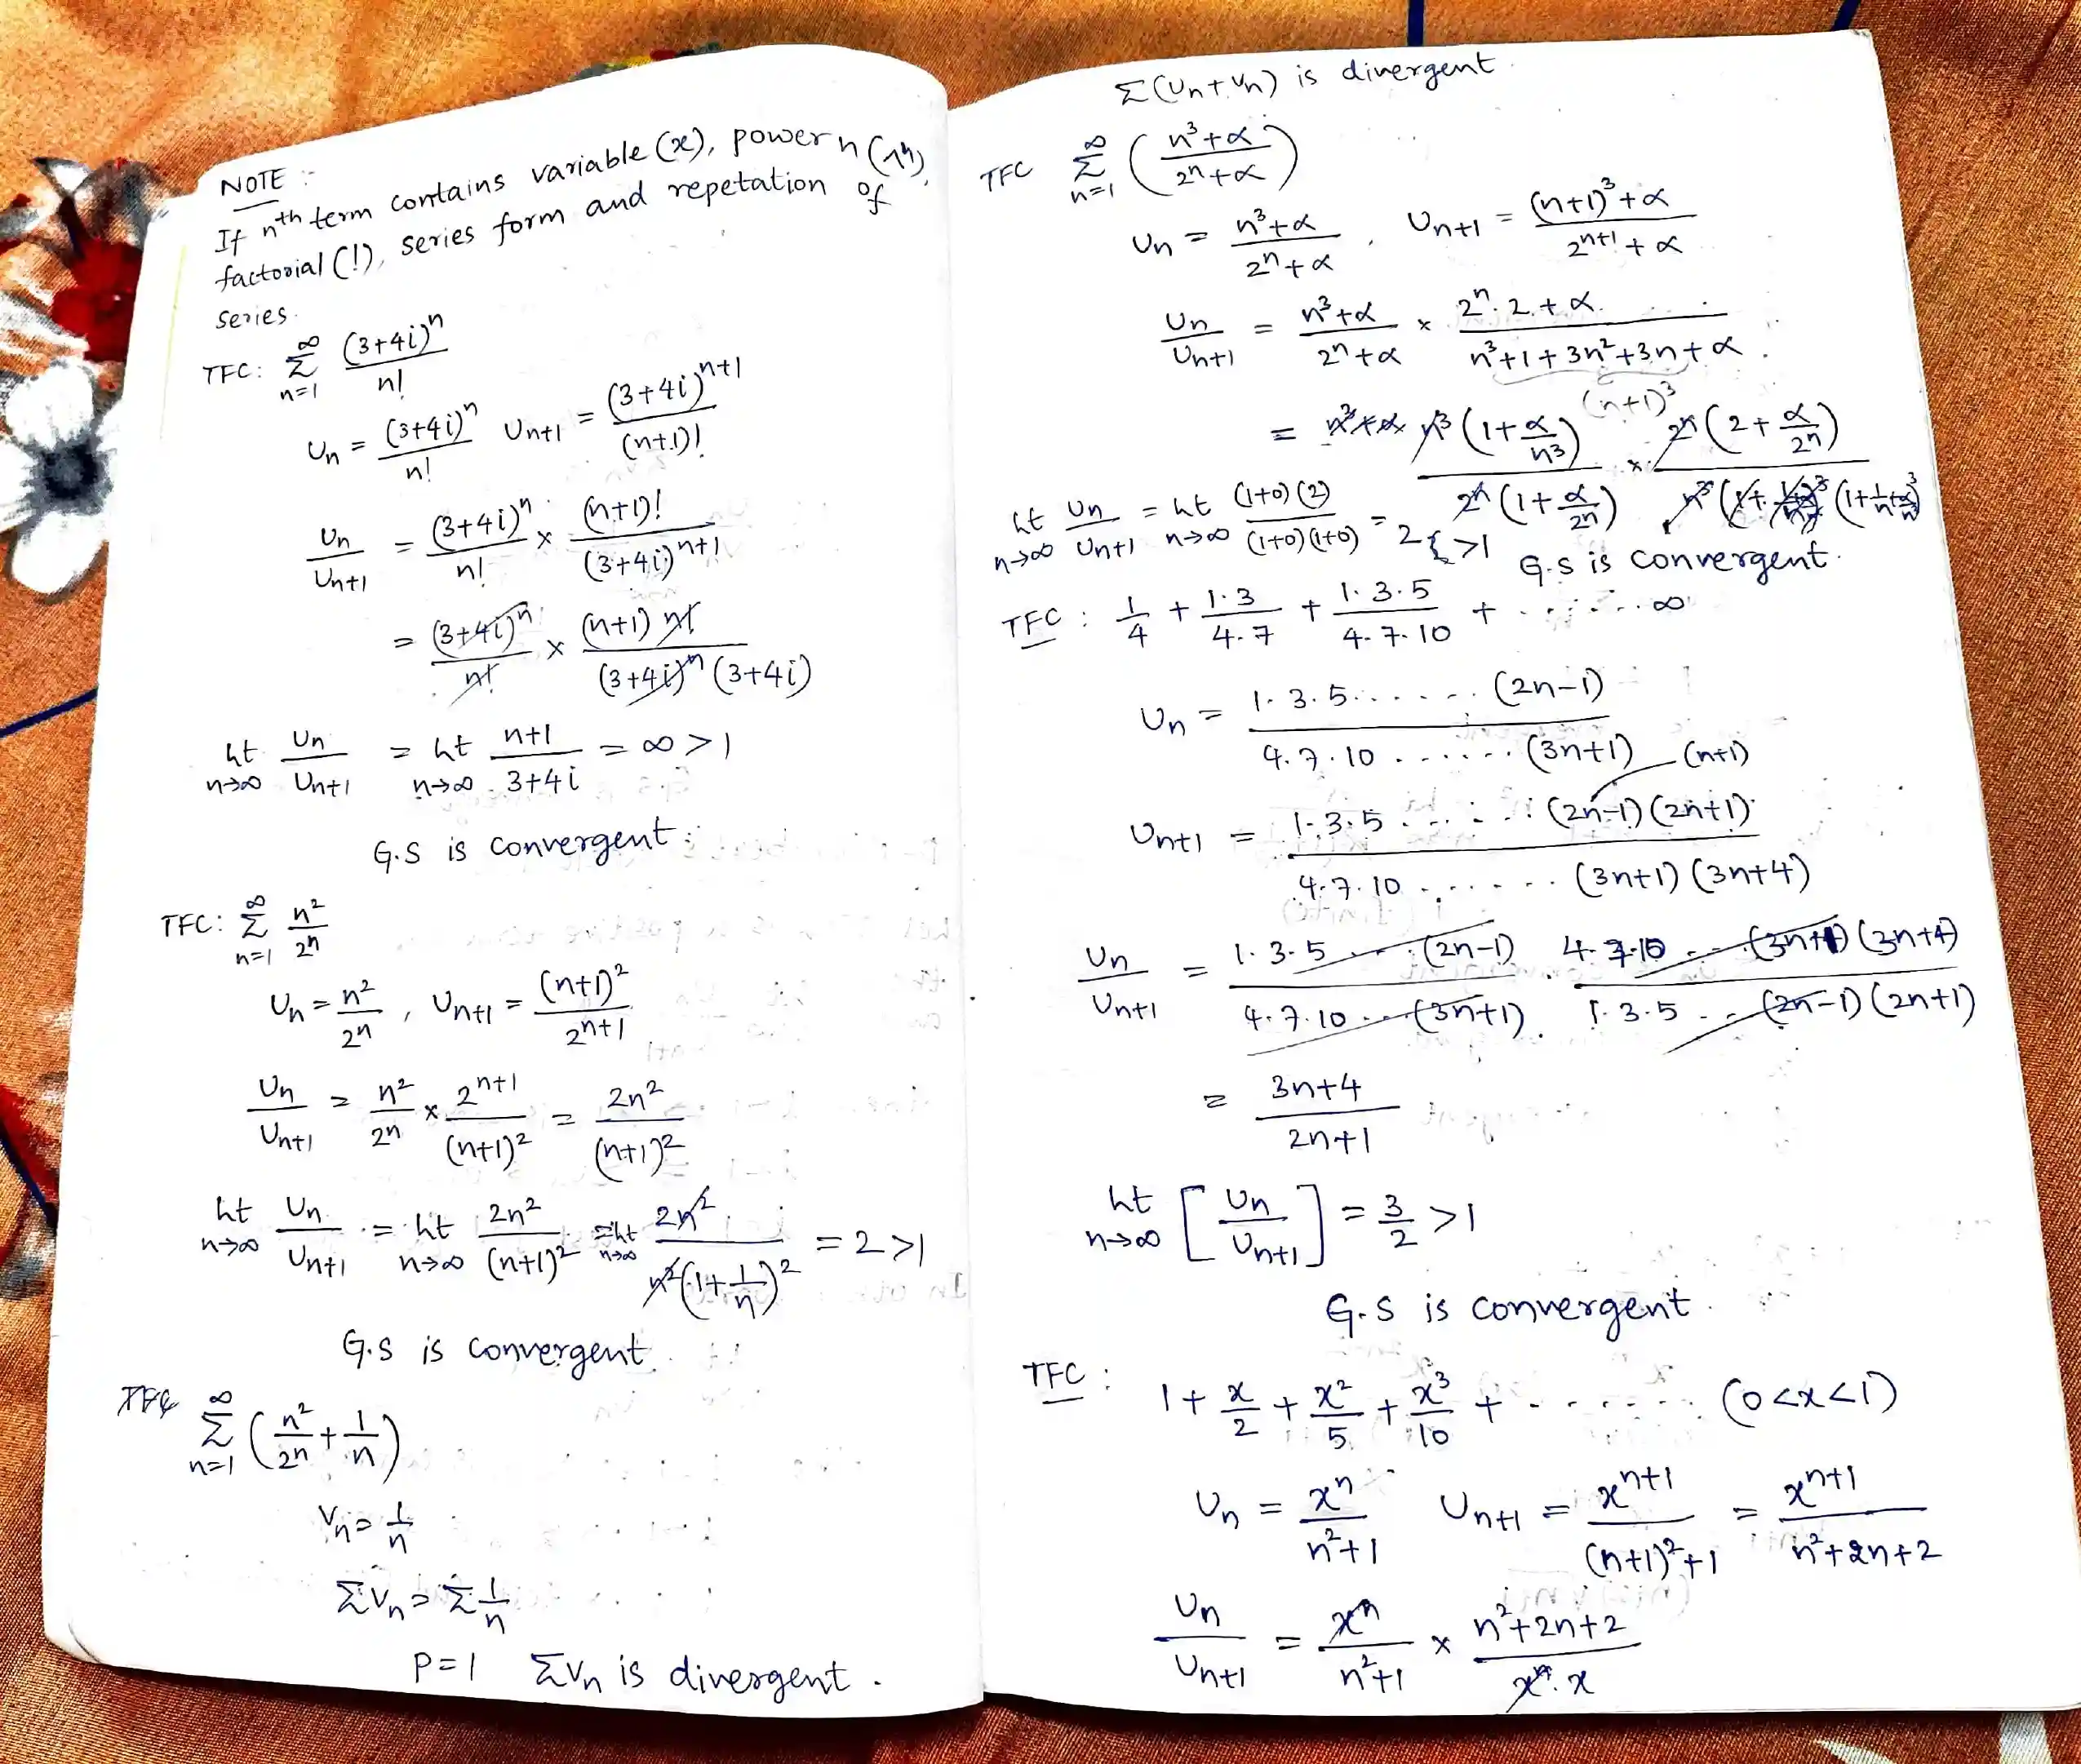 NOTE :-
If nth term contains variable (x), power n (1ⁿ),
factorial (!), series form and repetation of
series.
TFC: ∞Σn=1 (3+4i)ⁿ / n!
Un = (3+4i)ⁿ / n!  Un+1 = (3+4i)ⁿ⁺¹ / (n+1)!
Un / Un+1 = (3+4i)ⁿ / n! × (n+1)! / (3+4i)ⁿ⁺¹
= (3+4i)ⁿ / n! × (n+1) n! / (3+4i)ⁿ (3+4i)
lt n→∞ Un / Un+1 = lt n→∞ n+1 / 3+4i = ∞ > 1
G.S is convergent.
TFC: ∞Σn=1 n² / 2ⁿ
Un = n² / 2ⁿ , Un+1 = (n+1)² / 2ⁿ⁺¹
Un / Un+1 = n² / 2ⁿ × 2ⁿ⁺¹ / (n+1)² = 2n² / (n+1)²
lt n→∞ Un / Un+1 = lt n→∞ 2n² / (n+1)² = lt n→∞ 2n² / n²(1+1/n)² = 2 > 1
G.S is convergent.
TFC ∞Σn=1 (n²/2ⁿ + 1/n)
Vn = 1/n
ΣVn = Σ 1/n
P=1 ΣVn is divergent.
Σ(Un+Vn) is divergent.
TFC ∞Σn=1 (n³+α / 2ⁿ+α)
Un = n³+α / 2ⁿ+α , Un+1 = (n+1)³+α / 2ⁿ⁺¹+α
Un / Un+1 = n³+α / 2ⁿ+α × 2ⁿ.2.+α. / n³+1+3n²+3n+α.
(n+1)³
= n³+α n³(1+α/n³) / 2ⁿ(1+α/2ⁿ) × 2ⁿ(2+α/2ⁿ) / n³
lt n→∞ Un / Un+1 = lt n→∞ (1+0)(2) / (1+0)(1+0) = 2 { >1
G.S is convergent.
TFC : 1/4 + 1.3/4.7 + 1.3.5/4.7.10 + ........∞
Un = 1.3.5......(2n-1) / 4.7.10......(3n+1)
(n+1)
Un+1 = 1.3.5......(2n-1)(2n+1) / 4.7.10.......(3n+1)(3n+4)
Un / Un+1 = 1.3.5...(2n-1) / 4.7.10...(3n+1) . 4.7.10...(3n+1)(3n+4) / 1.3.5...(2n-1)(2n+1)
= 3n+4 / 2n+1
lt n→∞ [Un / Un+1] = 3/2 > 1
G.S is convergent.
TFC : 1 + x/2 + x²/5 + x³/10 + ....... (0<x<1)
Un = xⁿ / n²+1  Un+1 = xⁿ⁺¹ / (n+1)²+1 = xⁿ⁺¹ / n²+2n+2
Un / Un+1 = xⁿ / n²+1 × n²+2n+2 / xⁿ.x